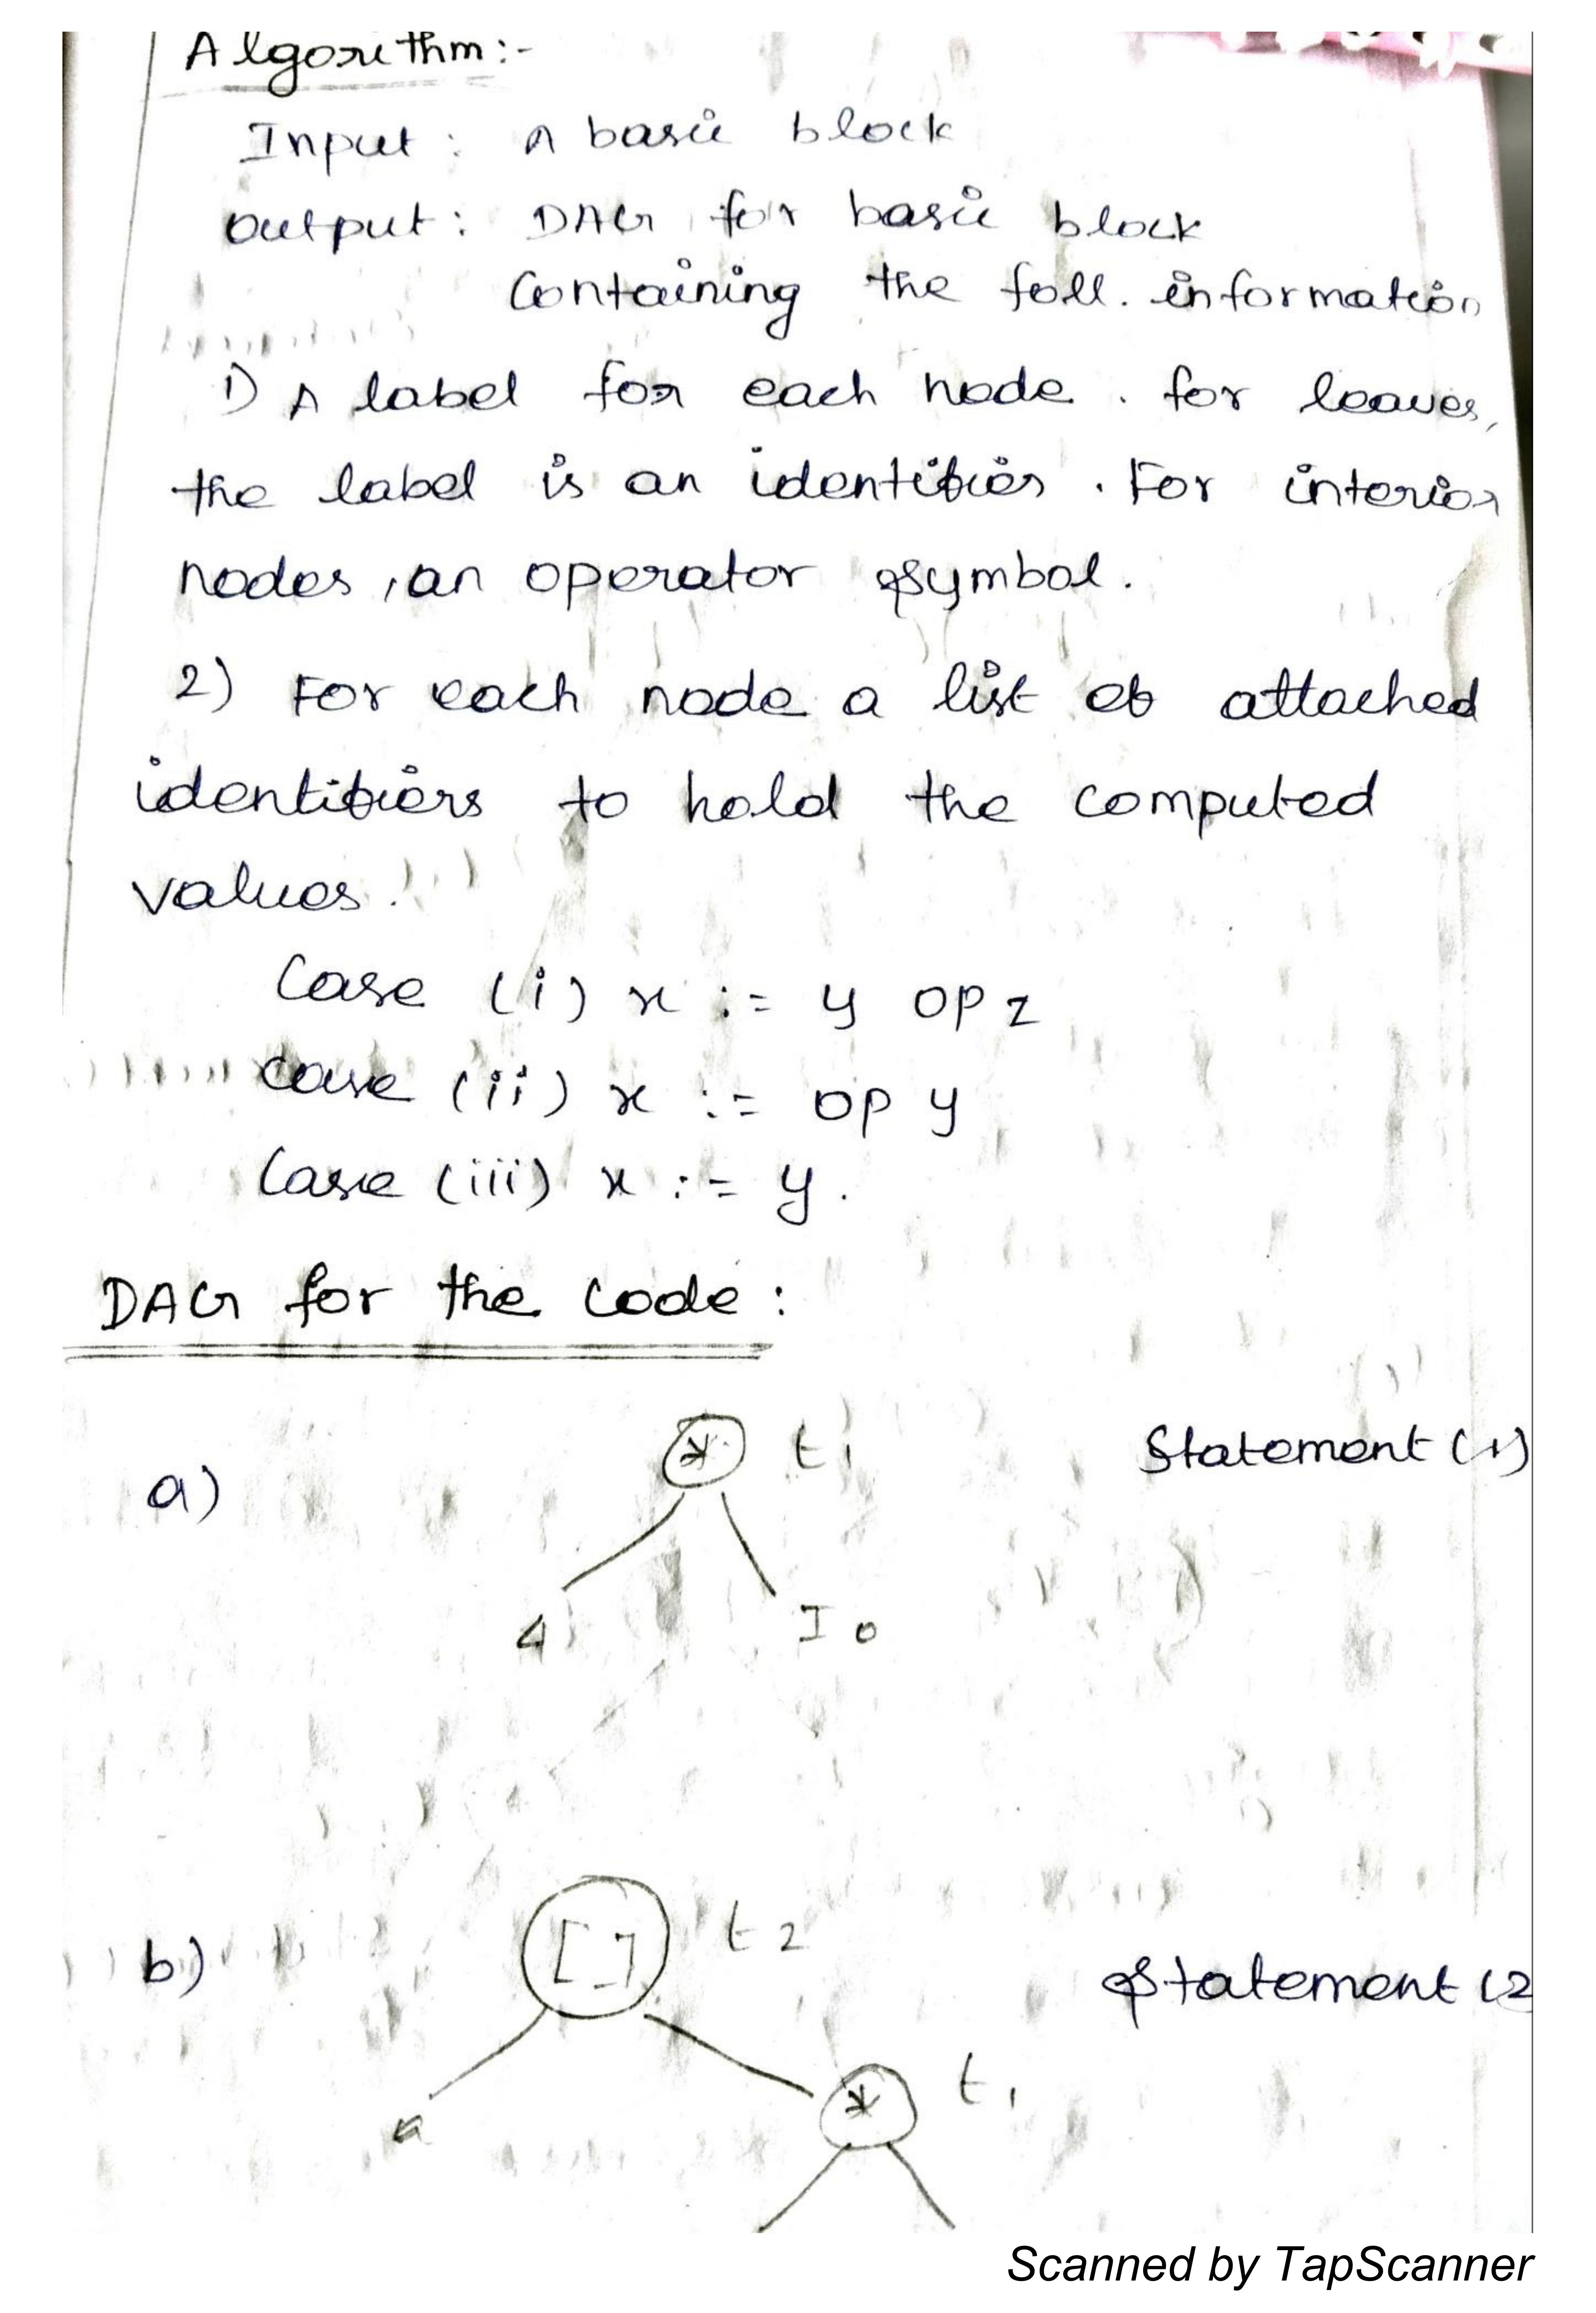 Algorithm:-
Input : A basic block
Output : DAG for basic block
Containing the foll. information
1) A label for each node. for leaves,
the label is an identifier. For interior
nodes, an operator symbol.
2) For each node a list of attached
identifiers to hold the computed
values.
Case (i) x := y OP z
Case (ii) x := OP y
Case (iii) x := y.
DAG for the Code :
a) * t1 Statement (1)
4 I0
b) [ ] t2 Statement (2
a * t1
Scanned by TapScanner